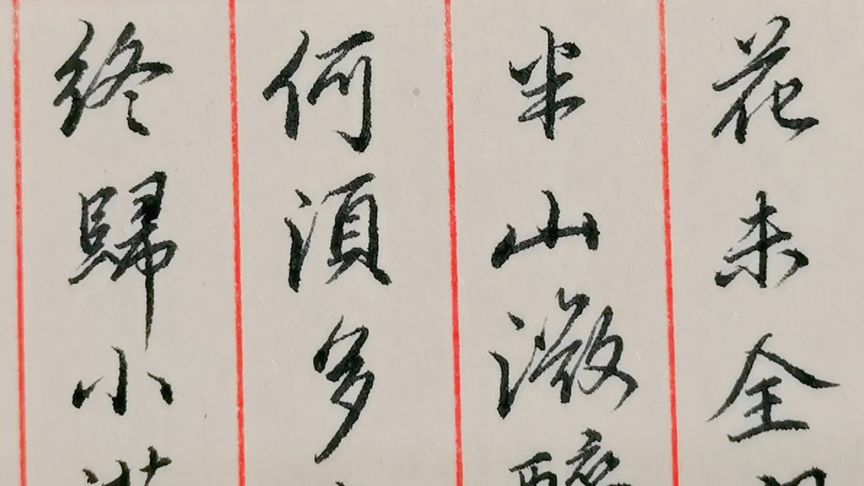 花未全
半山微
何須多
終歸小